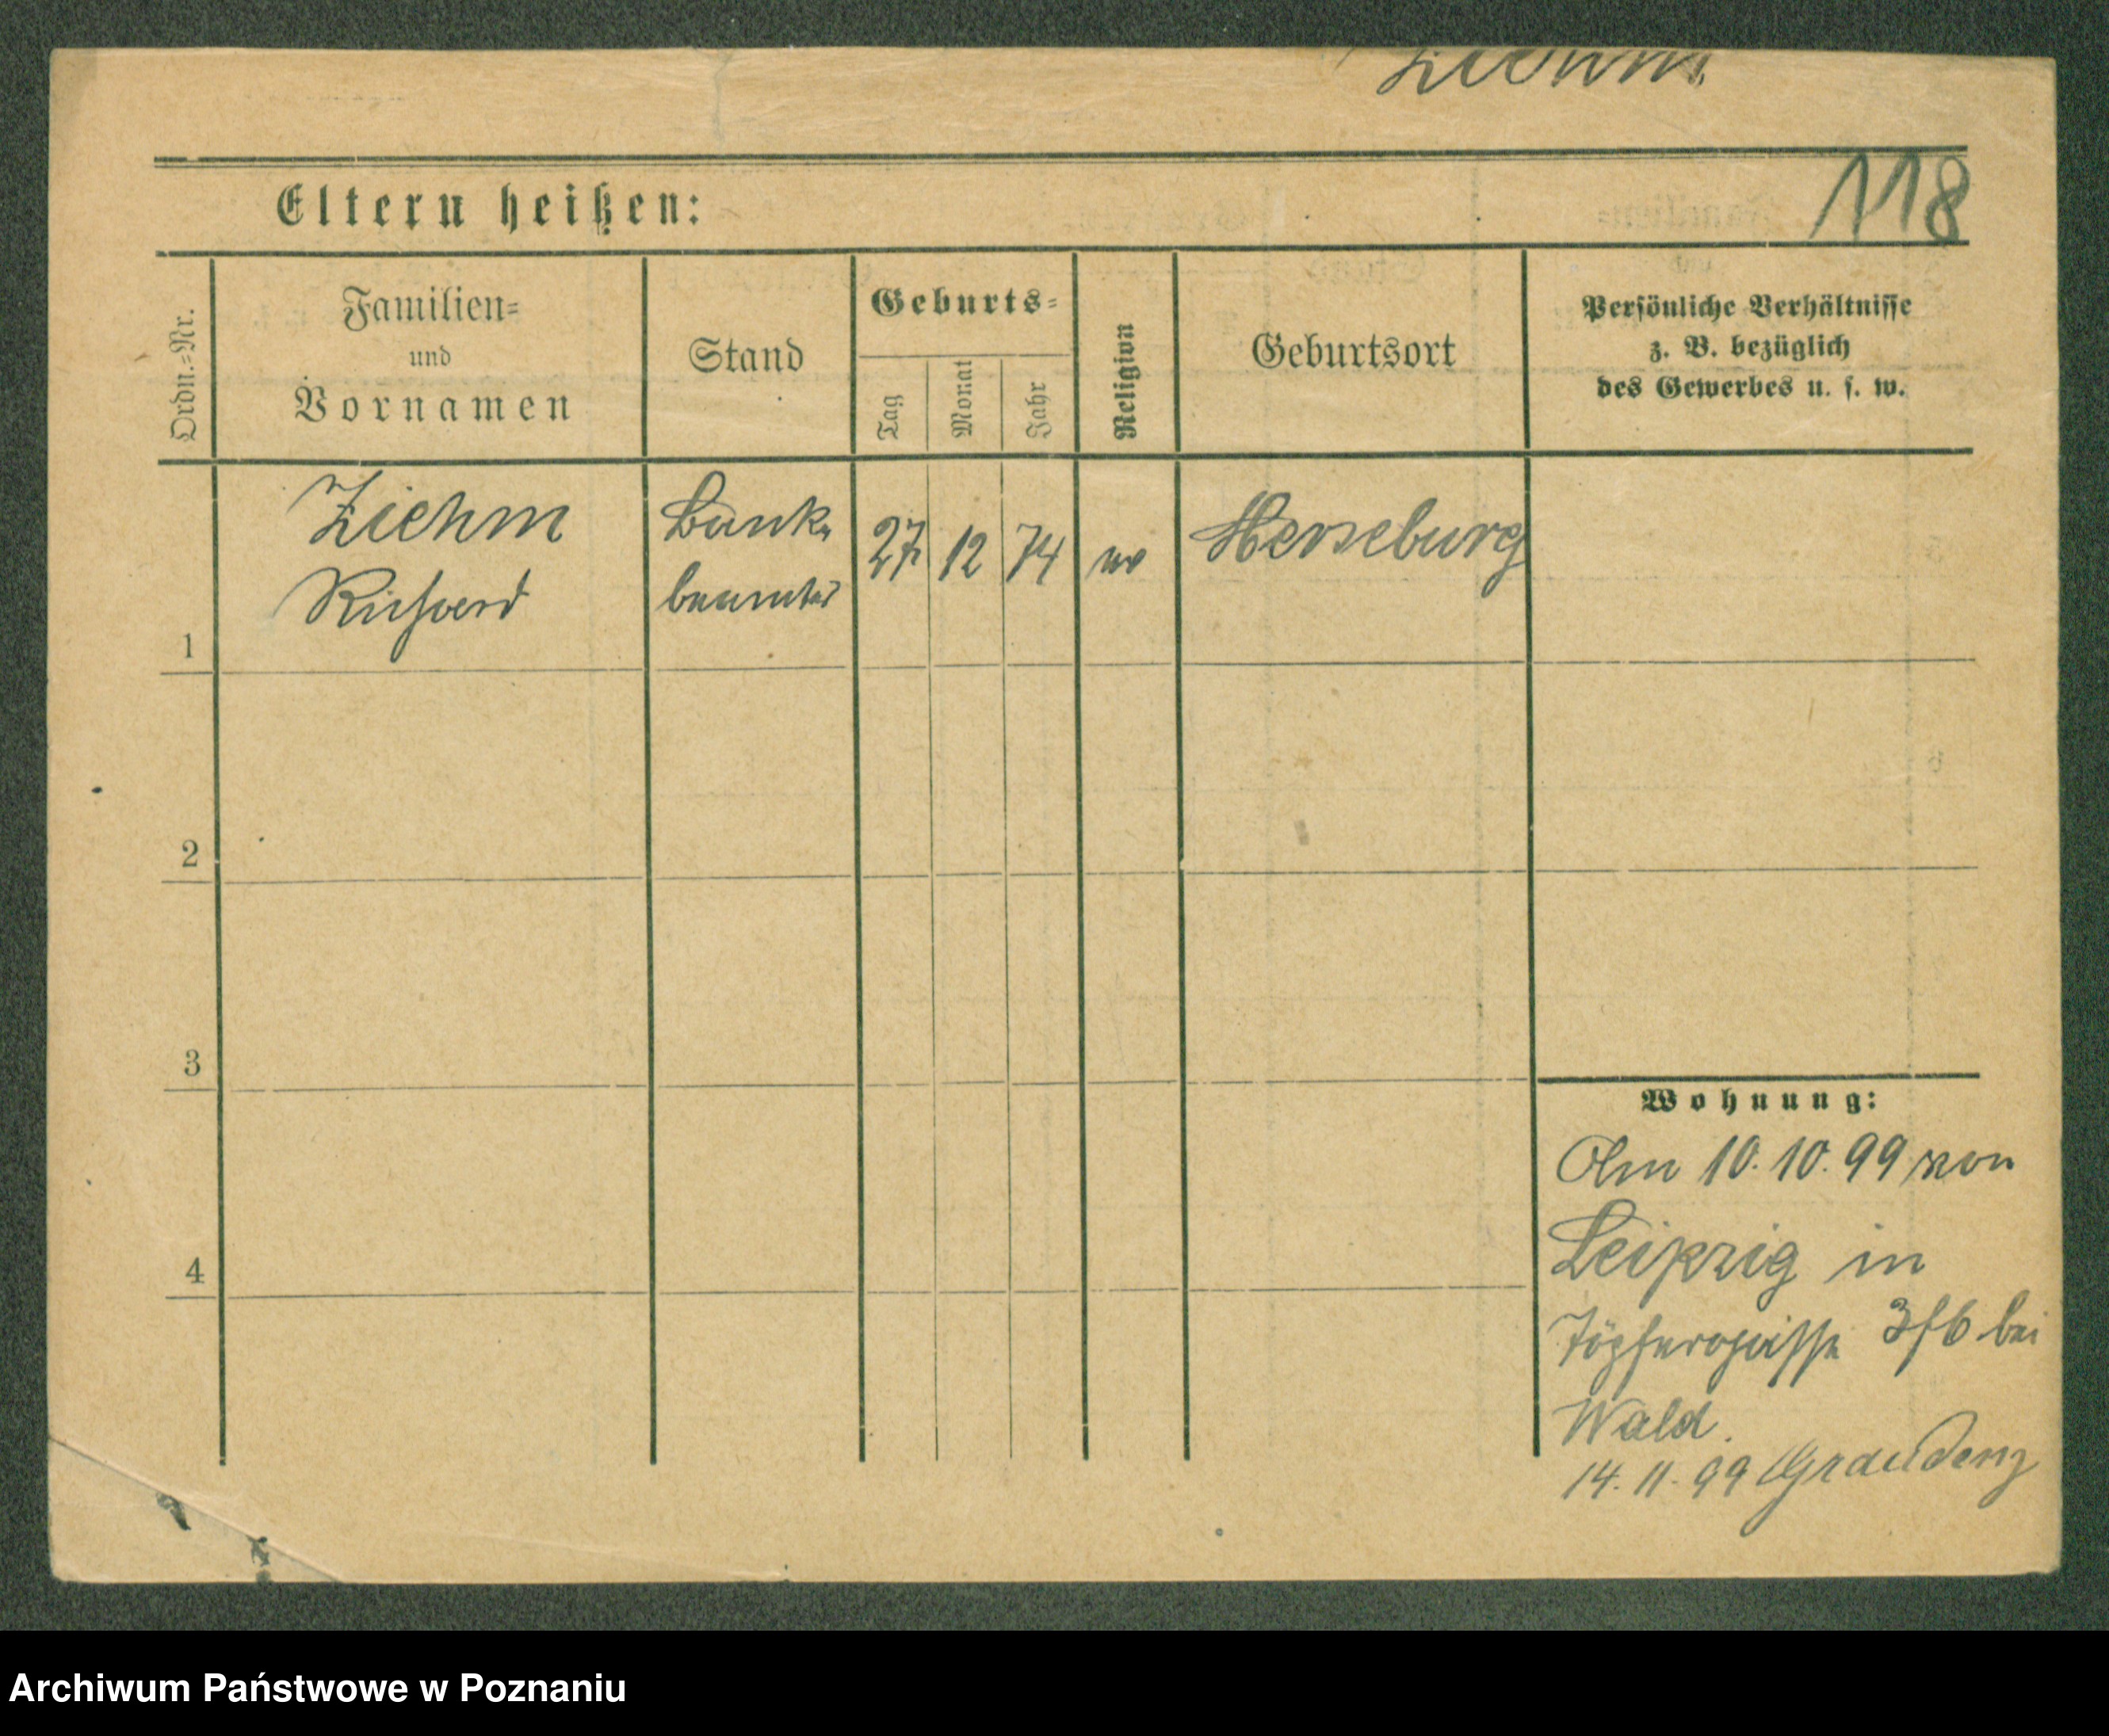 Ziehm
118
Eltern heißen:
Ordn.=Nr.
Familien=
und
Vornamen
Stand
Geburts=
Tag
Monat
Jahr
Religion
Geburtsort
Persönliche Verhältnisse
z. B. bezüglich
des Gewerbes u. s. w.
1
Ziehm
Richard
Bank-
beamter
27
12
74
ev
Merseburg
2
3
4
Wohnung:
Am 10.10.99 von
Leipzig in
Töpfergasse 3 f6 bei
Wald.
14.11.99 Graudenz
Archiwum Państwowe w Poznaniu